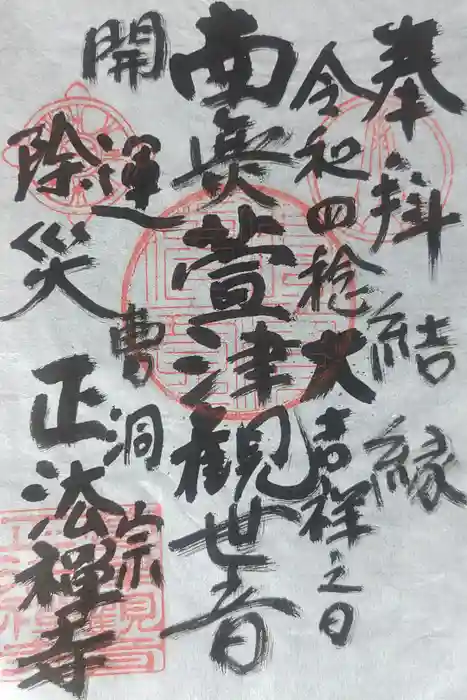 奉拝
結縁
令和四稔大吉祥之日
南無萱津観世音
開運
除災
曹洞宗
正法禅寺